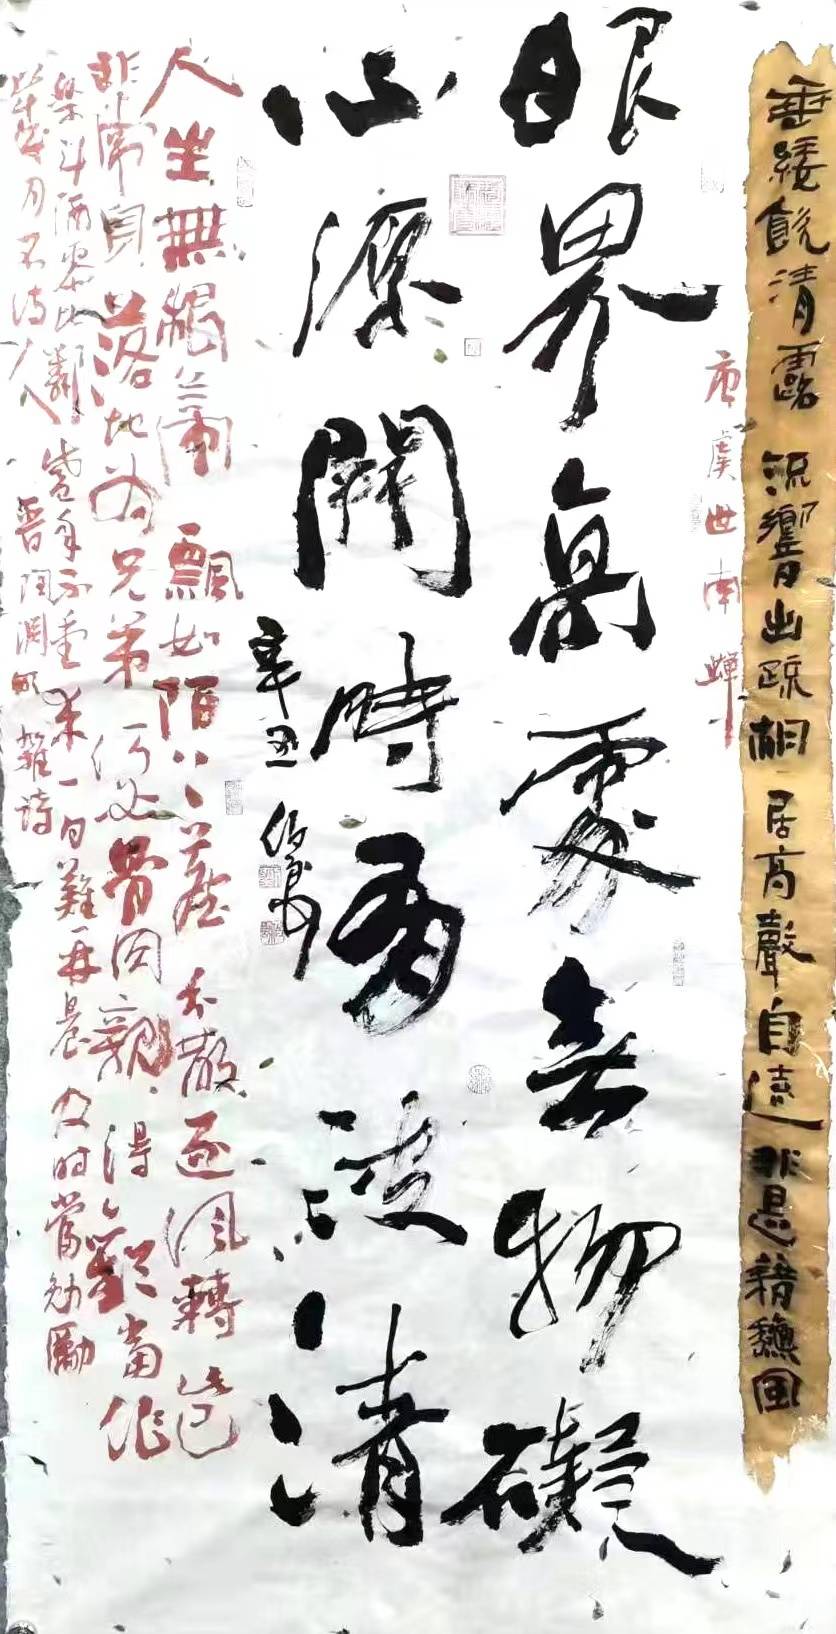 垂緌飲清露 流響出疏桐 居高聲自遠 非是藉龝風
唐虞世南蟬
眼界高處無物礙
心源開時有波清
辛丑
人生無根蒂 飄如陌上塵 分散逐風轉 此已
非常身 落地為兄弟 何必骨肉親 得歡當作
樂 斗酒聚比鄰 盛年不重來 一日難再晨 及時當勉勵
歲月不待人 晉陶淵明雜詩